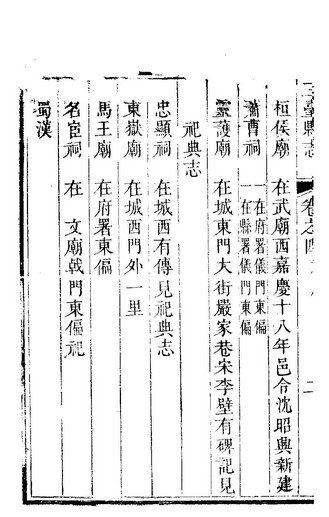 三臺縣志 卷之四
桓侯廟 在武廟西嘉慶十八年邑令沈昭興新建
蕭曹祠 一在府署儀門東偏
一在縣署儀門東偏
靈護廟 在城東門大街嚴家巷宋李壁有碑記見
祀典志
忠顯祠 在城西有傳見祀典志
東嶽廟 在城西門外一里
馬王廟 在府署東偏
名宦祠 在 文廟戟門東偏祀
蜀漢